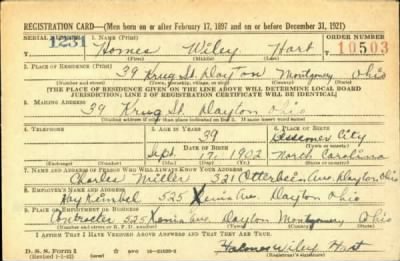 REGISTRATION CARD—(Men born on or after February 17, 1897 and on or before December 31, 1921)
SERIAL NUMBER 1. NAME (Print) ORDER NUMBER
1231 Homes Wiley Hart 10503
(First) (Middle) (Last)
2. PLACE OF RESIDENCE (Print)
39 Krug St. Dayton Montgomery Ohio
(Number and street) (Town, township, village, or city) (County) (State)
[THE PLACE OF RESIDENCE GIVEN ON THE LINE ABOVE WILL DETERMINE LOCAL BOARD
JURISDICTION; LINE 2 OF REGISTRATION CERTIFICATE WILL BE IDENTICAL]
3. MAILING ADDRESS
39 Krug St. Dayton Ohio
[Mailing address if other than place indicated on line 2. If same insert word same]
4. TELEPHONE 5. AGE IN YEARS 6. PLACE OF BIRTH
39 Bessemer City
DATE OF BIRTH (Town or county)
Sept. 19, 1902 North Carolina
(Exchange) (Number) (Mo.) (Day) (Yr.) (State or country)
7. NAME AND ADDRESS OF PERSON WHO WILL ALWAYS KNOW YOUR ADDRESS
Charles Miller 321 Otterbein Ave. Dayton, Ohio
8. EMPLOYER'S NAME AND ADDRESS
525 Xenia Ave. Dayton Ohio
9. PLACE OF EMPLOYMENT OR BUSINESS
Contractor 525 Xenia Ave. Dayton Montgomery Ohio
(Number and street or R. F. D. number) (Town) (County) (State)
I AFFIRM THAT I HAVE VERIFIED ABOVE ANSWERS AND THAT THEY ARE TRUE.
D. S. S. Form 1
(Revised 1-1-42) (over) Wiley Hart
(Registrant's signature)